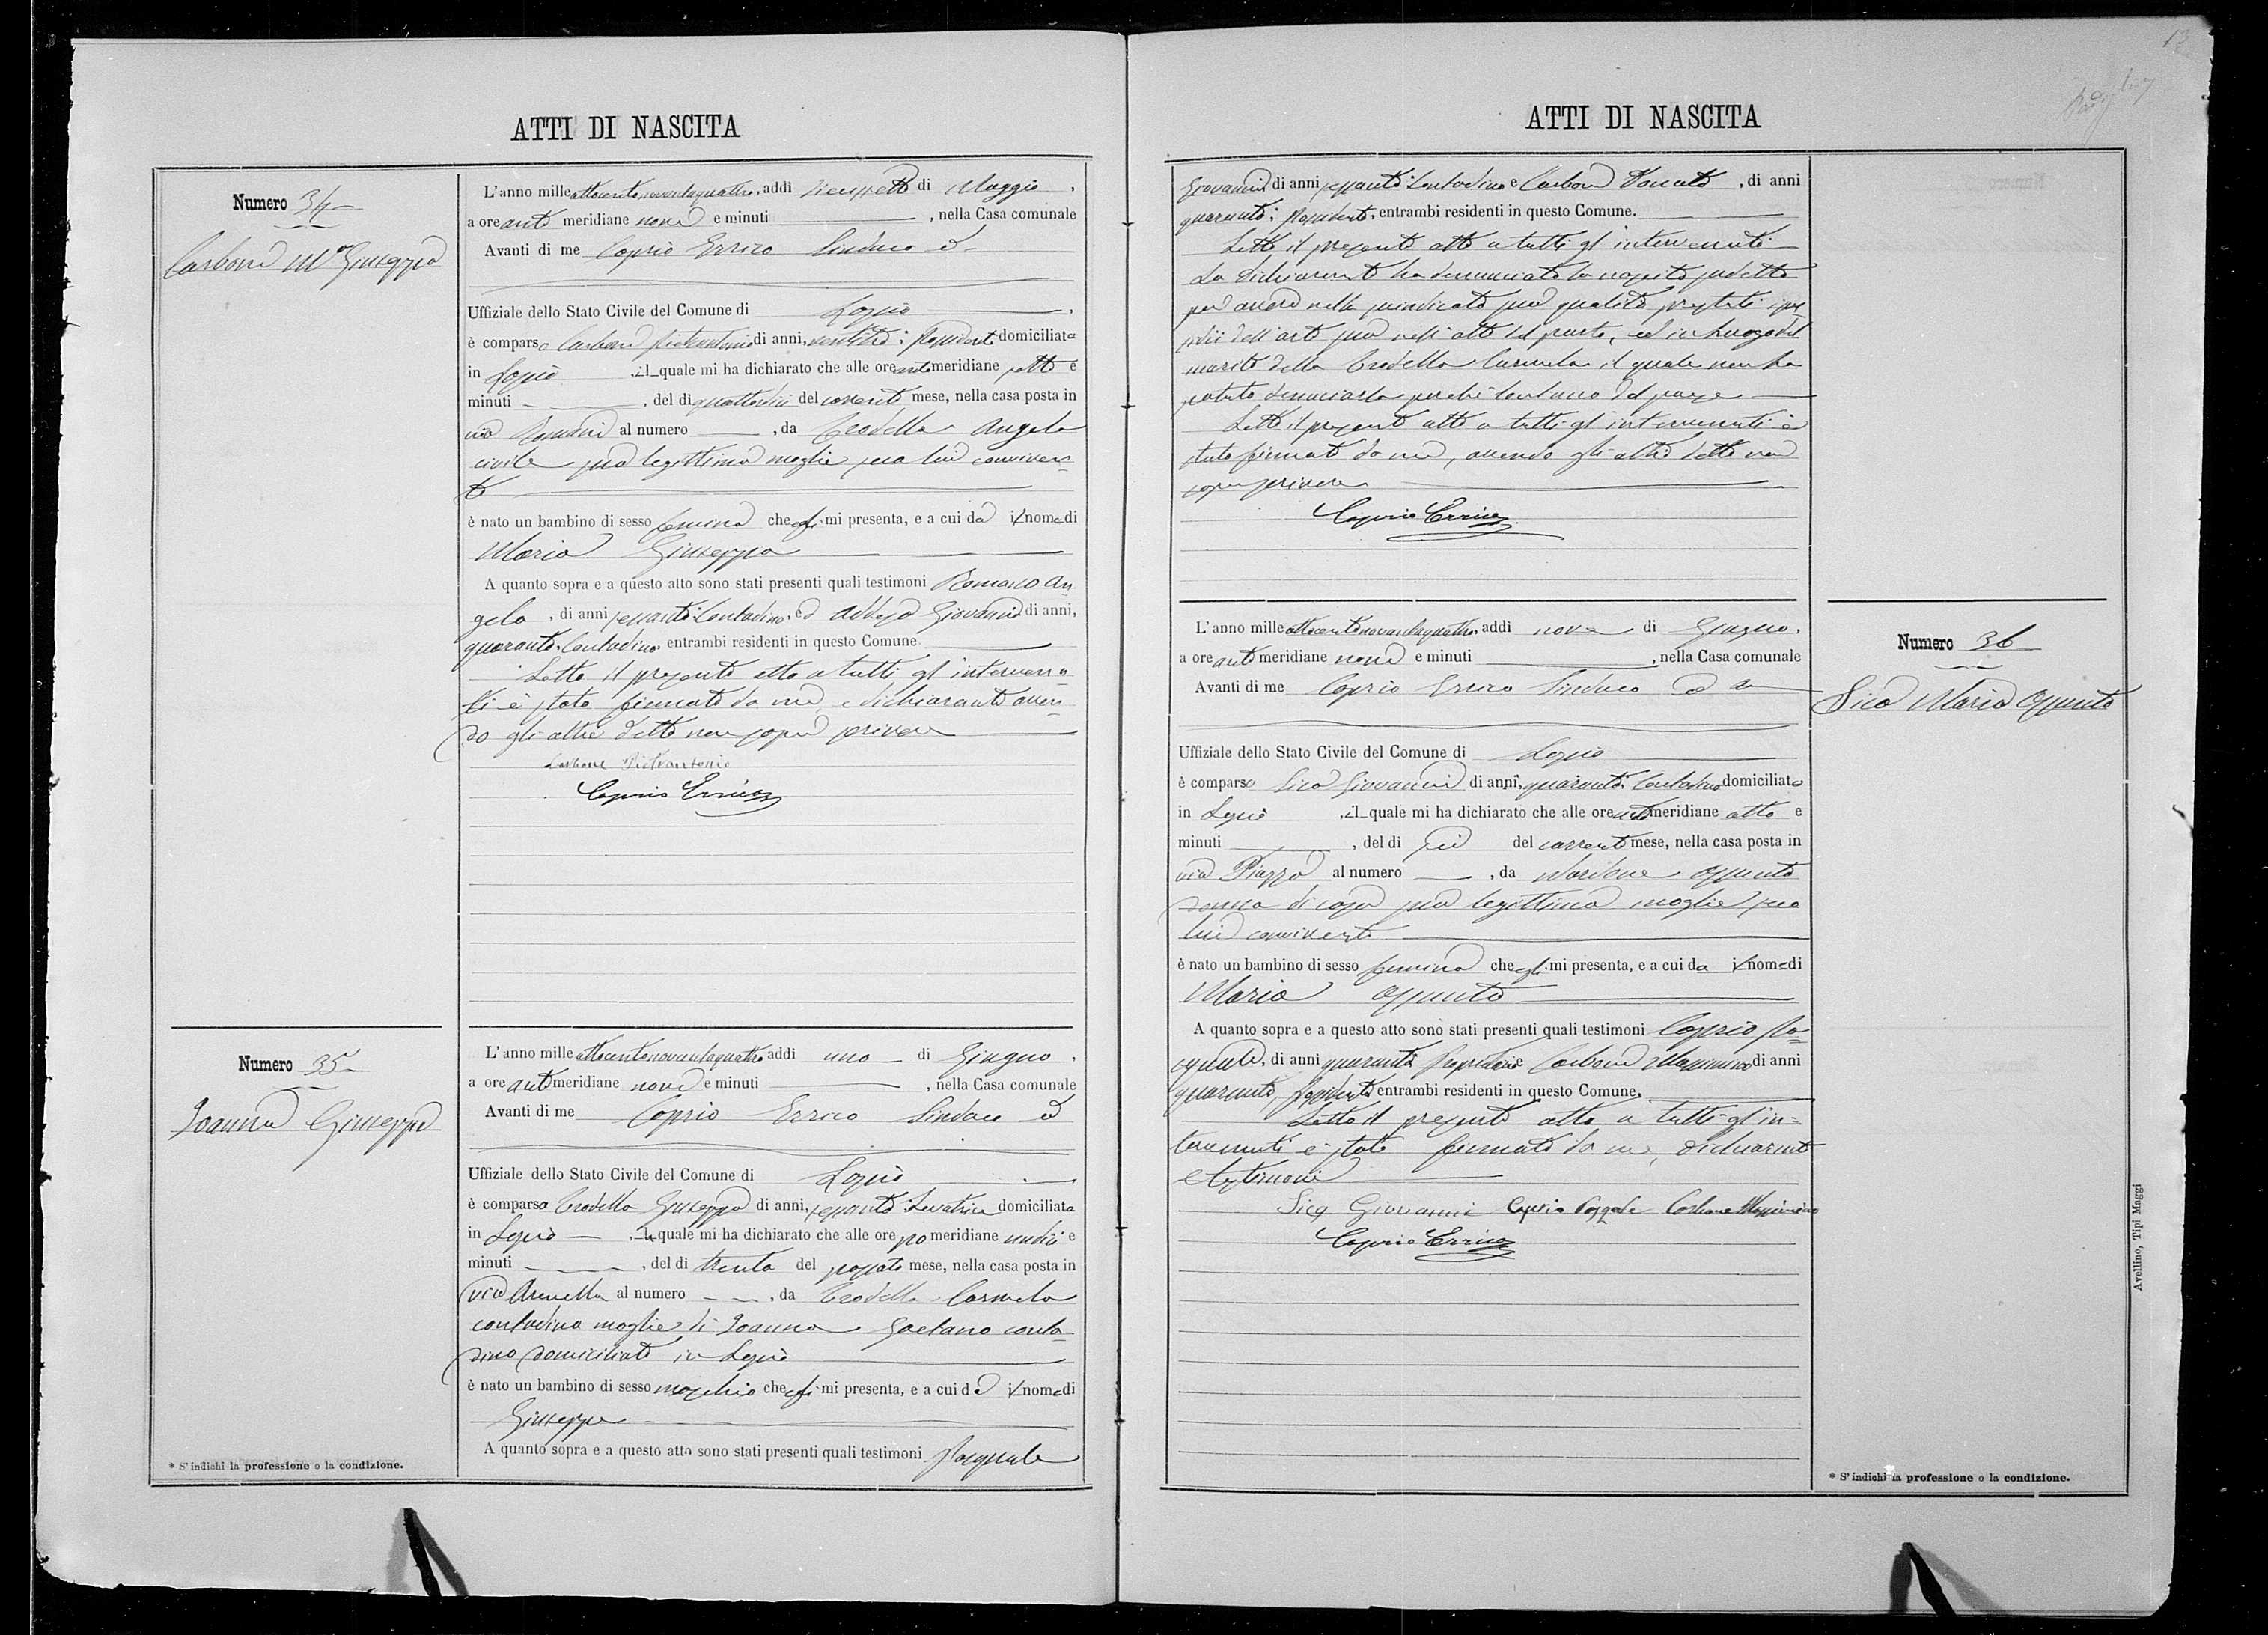 13
ATTI DI NASCITA
Numero 34
Carbone Mª Giuseppa
L'anno mille ottocentonovantaquattro, addi diciassette di Maggio,
a ore anti meridiane nove e minuti , nella Casa comunale
Avanti di me Caprio Errico Sindaco ed
Uffiziale dello Stato Civile del Comune di Lapio
è comparso Carbone Pietrantonio di anni, ventitre; Possidente domiciliato
in Lapio , il quale mi ha dichiarato che alle ore anti meridiane sette e
minuti , del dì quattordici del corrente mese, nella casa posta in
via Romani al numero , da Trodella Angela
civile sua legittima moglie seco lui conviven-
te
è nato un bambino di sesso femina che egli mi presenta, e a cui da il nome di
Maria Giuseppa
A quanto sopra e a questo atto sono stati presenti quali testimoni Romano An-
gelo, di anni sessanta Contadino, ed Giovanni di anni,
quaranta, Contadino, entrambi residenti in questo Comune.
Letto il presente atto a tutti gl'intervenu-
ti è stato firmato da me, e dichiarante aven-
do gli altri detto non sapere scrivere
Carbone Pietrantonio
Caprio Errico
Numero 35
Ioanna Giuseppe
L'anno mille ottocentonovantaquattro addi uno di Giugno,
a ore anti meridiane nove e minuti , nella Casa comunale
Avanti di me Caprio Errico Sindaco ed
Uffiziale dello Stato Civile del Comune di Lapio
è comparsa Trodella Giuseppa di anni, sessanta Levatrice domiciliata
in Lapio , la quale mi ha dichiarato che alle ore po meridiane undici e
minuti , del dì trenta del passato mese, nella casa posta in
via Arenella al numero , da Trodella Carmela
contadina moglie di Ioanna Gaetano conta-
dino domiciliato in Lapio
è nato un bambino di sesso maschio che mi presenta, e a cui dà il nome di
Giuseppe
A quanto sopra e a questo atto sono stati presenti quali testimoni Pasquale
* S'indichi la professione o la condizione.
ATTI DI NASCITA
Giovanni di anni sessanta Contadino e Carbone Donato, di anni
quaranta; Possidente, entrambi residenti in questo Comune.
Letto il presente atto a tutti gl'intervenuti
La dichiarante ha denunciato la nascita sudetta
per avere nella sua qualità prestati i
dell'arte sua nell'atto del parto, ed in luogo del
marito della Trodella Carmela il quale non ha
potuto denunciarla perchè lontano dal paese
Letto il presente atto a tutti gl'intervenuti è
stato firmato da me, avendo gli altri detto non
sapere scrivere
Caprio Errico
Numero 36
Sica Maria Assunta
L'anno mille ottocentonovantaquattro, addi nove di Giugno,
a ore anti meridiane nove e minuti , nella Casa comunale
Avanti di me Caprio Errico Sindaco ed
Uffiziale dello Stato Civile del Comune di Lapio
è comparso Sica Giovanni di anni, quaranta, Contadino domiciliato
in Lapio , il quale mi ha dichiarato che alle ore anti meridiane otto e
minuti , del dì sei del corrente mese, nella casa posta in
via Piazza al numero , da Nardone Assunta
donna di casa sua legittima moglie seco
lui convivente
è nato un bambino di sesso femina che egli mi presenta, e a cui da il nome di
Maria Assunta
A quanto sopra e a questo atto sono stati presenti quali testimoni Caprio Pa-
squale, di anni quaranta Proprietario e Carbone Massimino di anni
quaranta, Possidente entrambi residenti in questo Comune.
Letto il presente atto a tutti gl'in-
tervenuti è stato firmato da me, dichiarante
e testimoni
Sica Giovanni Caprio Pasquale Carbone Massimino
Caprio Errico
* S'indichi la professione o la condizione.
Avellino, Tipi Maggi